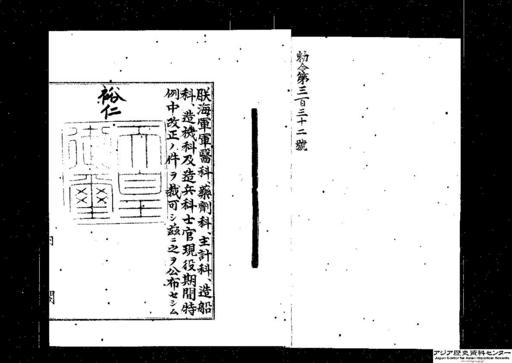 勅令第三百三十二號
朕海軍軍醫科、藥劑科、主計科、造船
科、造機科及造兵科士官現役期間特
例中改正ノ件ヲ裁可シ茲ニ之ヲ公布セシム
裕仁
天皇
御璽
内閣
アジア歴史資料センター
Japan Center for Asian Historical Records